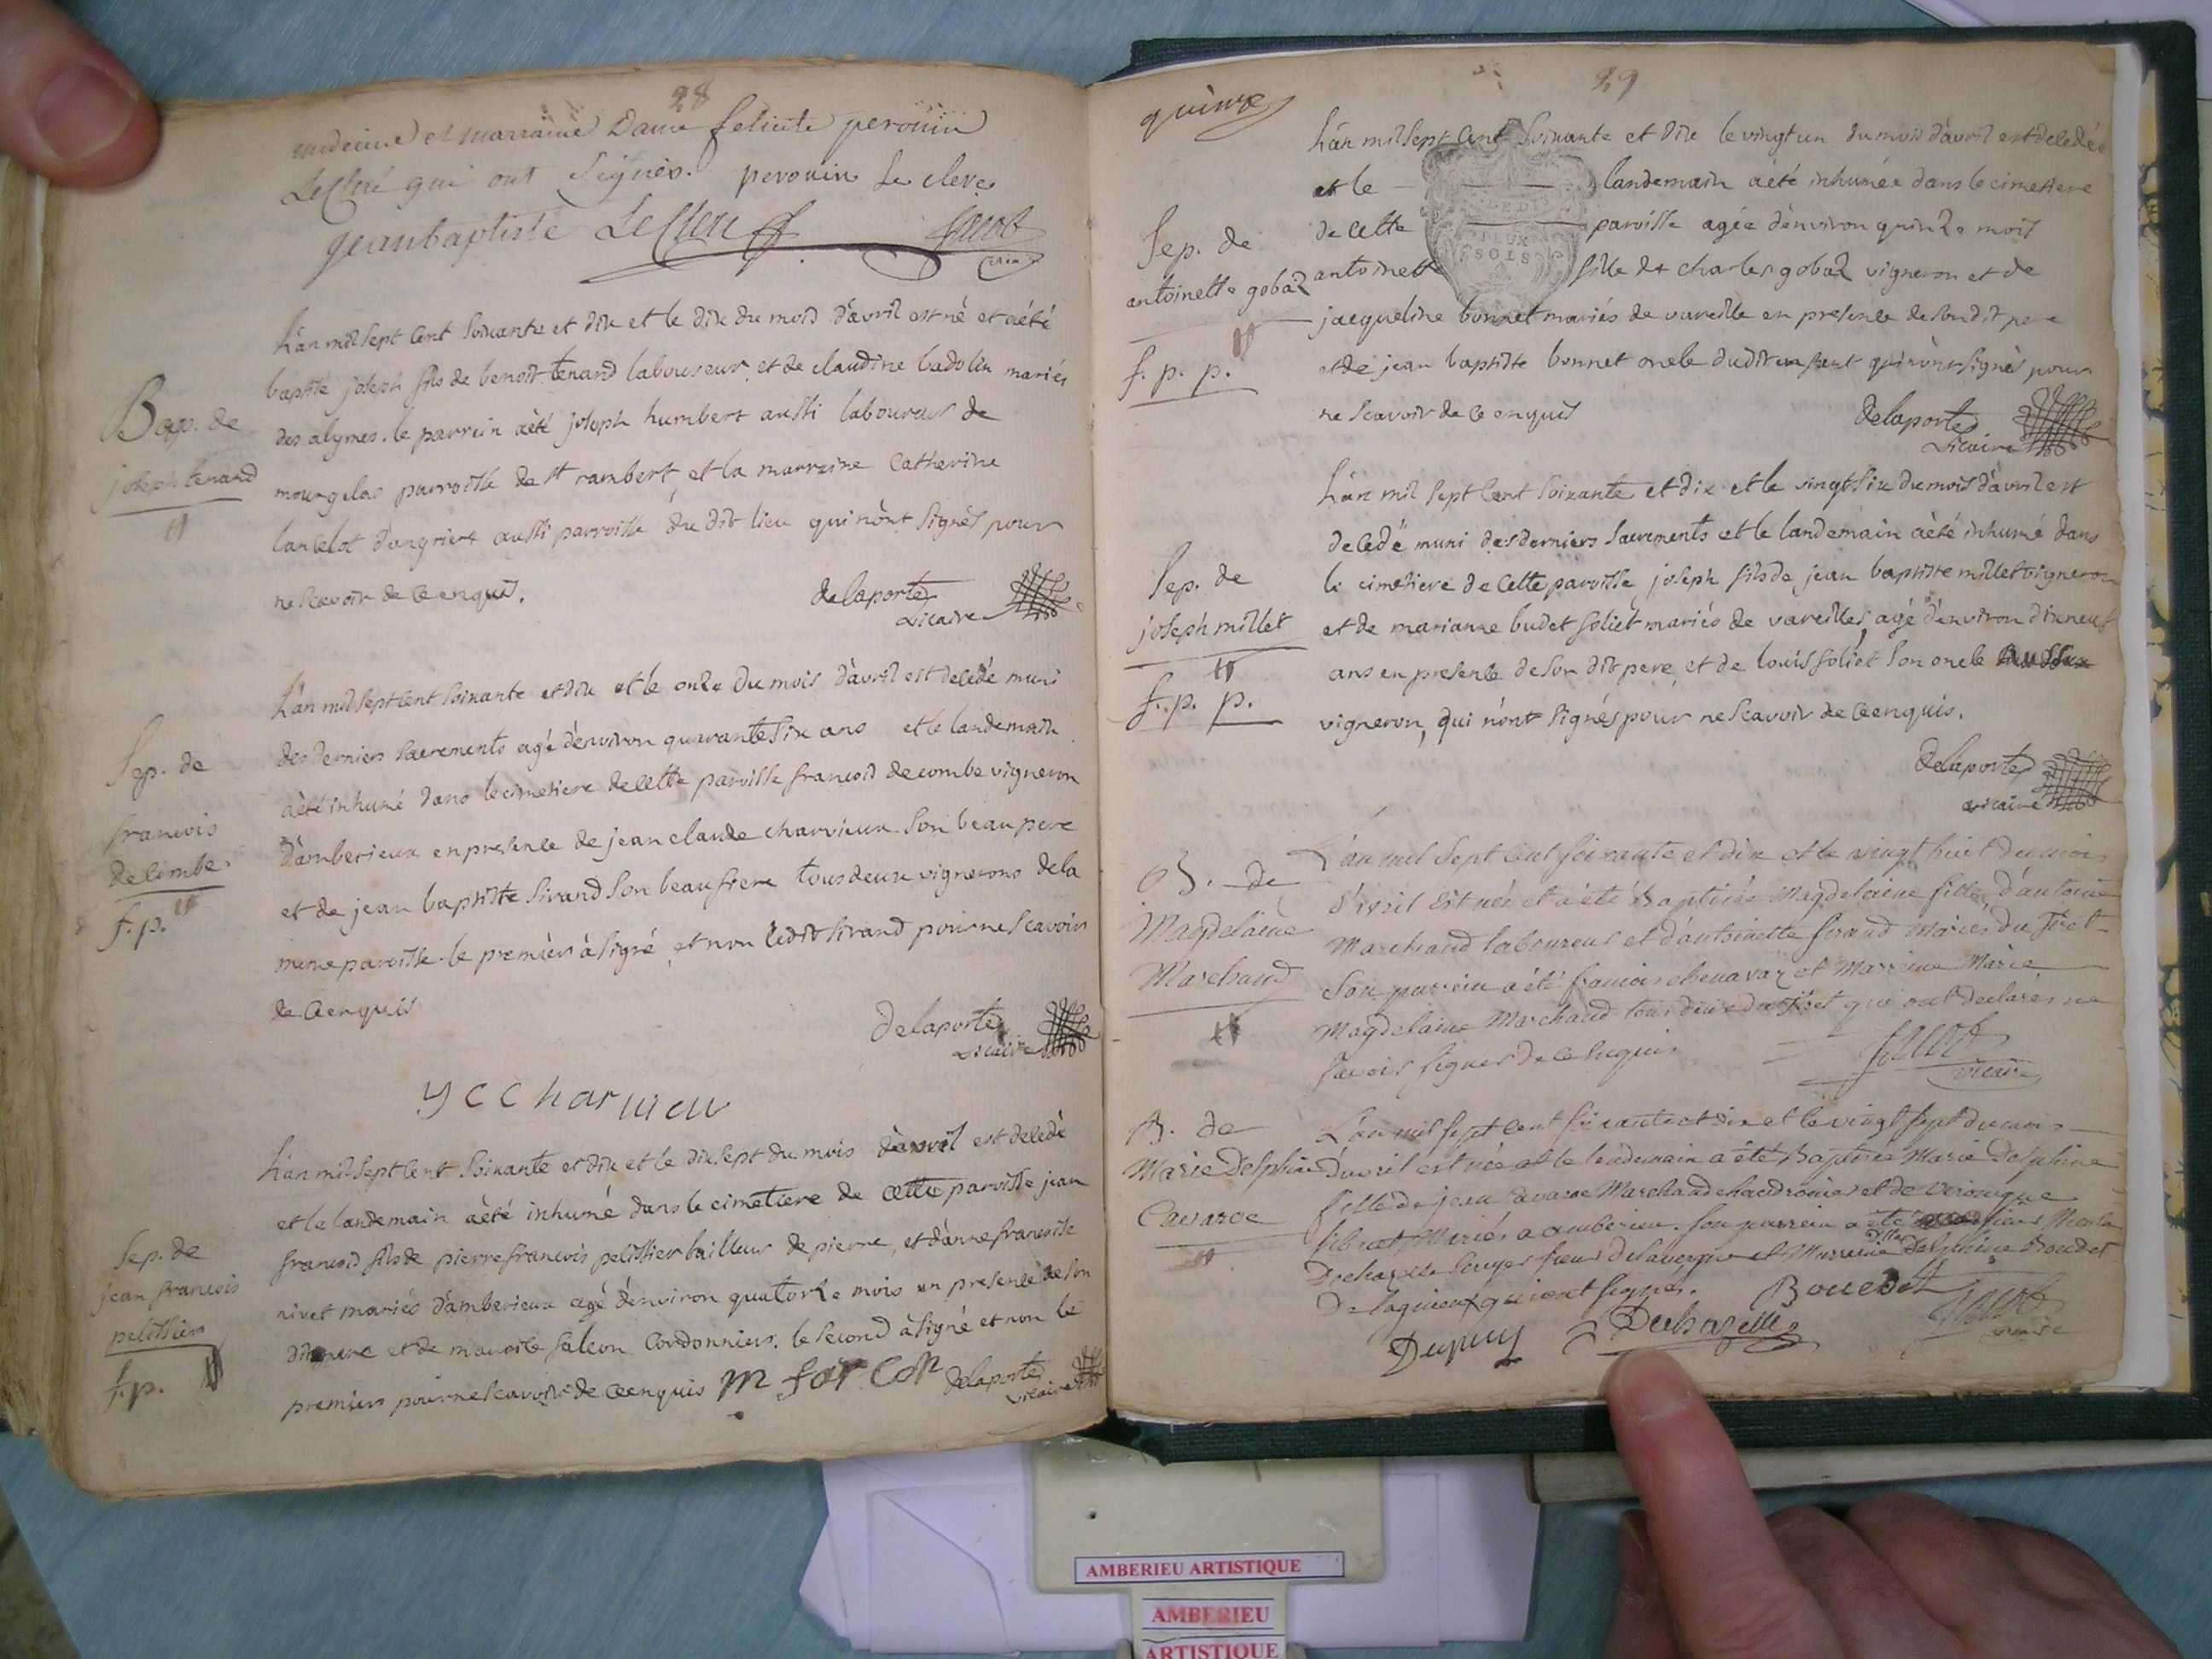 28
medecine et marraine Dame felicite perouin
LeClerc qui ont Signés. perouin Le clerc
jeanbaptiste LeClerc Jacob
vicaire
Bap. de
joseph tenand
L'an mil sept Cent Soixante et dix et le dix du mois d'avril est né et aété
baptisé joseph fils de benoit tenand laboureur et de claudine badolin mariés
des alymes. le parrein aété joseph humbert aussi laboureur de
mourgelas parroisse de st rambert et la marraine Catherine
lancelot d'angriere aussi parroisse du dit lieu qui n'ont Signés pour
ne Scavoir de Ce enquis.
delaporte
vicaire
Sep. de
francois
decombe
f.p.
L'an mil Sept Cent Soixante et dix et le onze du mois d'avril est decedé muni
des derniers Sacrements agé d'environ quarante Six ans et le landemain
aété inhumé dans le cimetiere de cette paroisse francois decombe vigneron
d'amberieux en presence de jean claude charvieux Son beau pere
et de jean baptiste Sirand Son beaufrere tous deux vignerons de la
meme paroisse. le premier à Signé et non ledit Sirand pour ne Scavoir
de Ce enquis
Delaporte
vicaire
y c c harvieu
Sep. de
jean francois
pelissier
f.p.
L'an mil Sept Cent Soixante et dix et le dix Sept du mois d'avril est decedé
et le landemain aété inhumé dans le cimetiere de cette paroisse jean
francois fils de pierre francois pelissier tailleur de pierre, et d'anne francoise
nivet mariés d'amberieux agé d'environ quatorze mois en presence de Son
dit pere et de mauris falcon Cordonnier. le Second à Signé et non le
premier pour ne Scavoir de Ce enquis m farcon delaporte
vicaire
29
quinze
Sep. de
antoinette gobaz
f. p. p.
L'an mil Sept Cent Soixante et dix le vingt un du mois d'avril est decedée
et le landemain aété inhumée dans le cimetiere
de cette paroisse agée d'environ quinze mois
antoinette fille de charles gobaz vigneron et de
jacqueline bonnet mariés de vareille en presence de Son dit pere
et de jean baptiste bonnet oncle dudit enfant qui n'ont signés pour
ne Scavoir de Ce enquis
delaporte
vicaire
DEUX
SOLS
Sep. de
joseph millet
f. p. p.
L'an mil Sept Cent Soixante et dix et le vingt Six du mois d'avril est
decedé muni des derniers Sacrements et le landemain aété inhumé dans
le cimetiere de Cette paroisse joseph fils de jean baptiste millet vigneron
et de marianne budet foliet mariés de vareilles, agé d'environ dixneuf
ans en presence de Son dit pere et de louis foliet Son oncle
vigneron, qui n'ont Signés pour ne Scavoir de Ce enquis.
delaporte
vicaire
B. de
Magdelaine
Marchand
L'an mil Sept Cent Soixante et dix et le vingt huit du mois
d'avril est née et a été Baptisée Magdelaine fille d'antoine
Marchand laboureur et d'antoinette Sirand Mariés du Tiret
Son parrein a été francois chenavaz et Marreine Marie
Magdelaine Marchand tous deux du Tiret qui ont declarés ne
Savoir Signer de ce Enquis
Jacob
vicaire
B. de
Marie Delphine
Cavaroe
L'an mil Sept Cent Soixante et dix et le vingt Sept du mois
d'avril est née et le lendemain a été Baptisée Marie Delphine
fille de jean Marchand chaudronier et de Veronique
Mariés a amberieu. Son parrein a été
Ecuyer Sieur et Marreine Dlle Delphine Boudet
De lagnieux qui ont signés. Bouedet
Dupuy Dechazelles Jacob
vicaire
AMBERIEU ARTISTIQUE
AMBERIEU
ARTISTIQUE